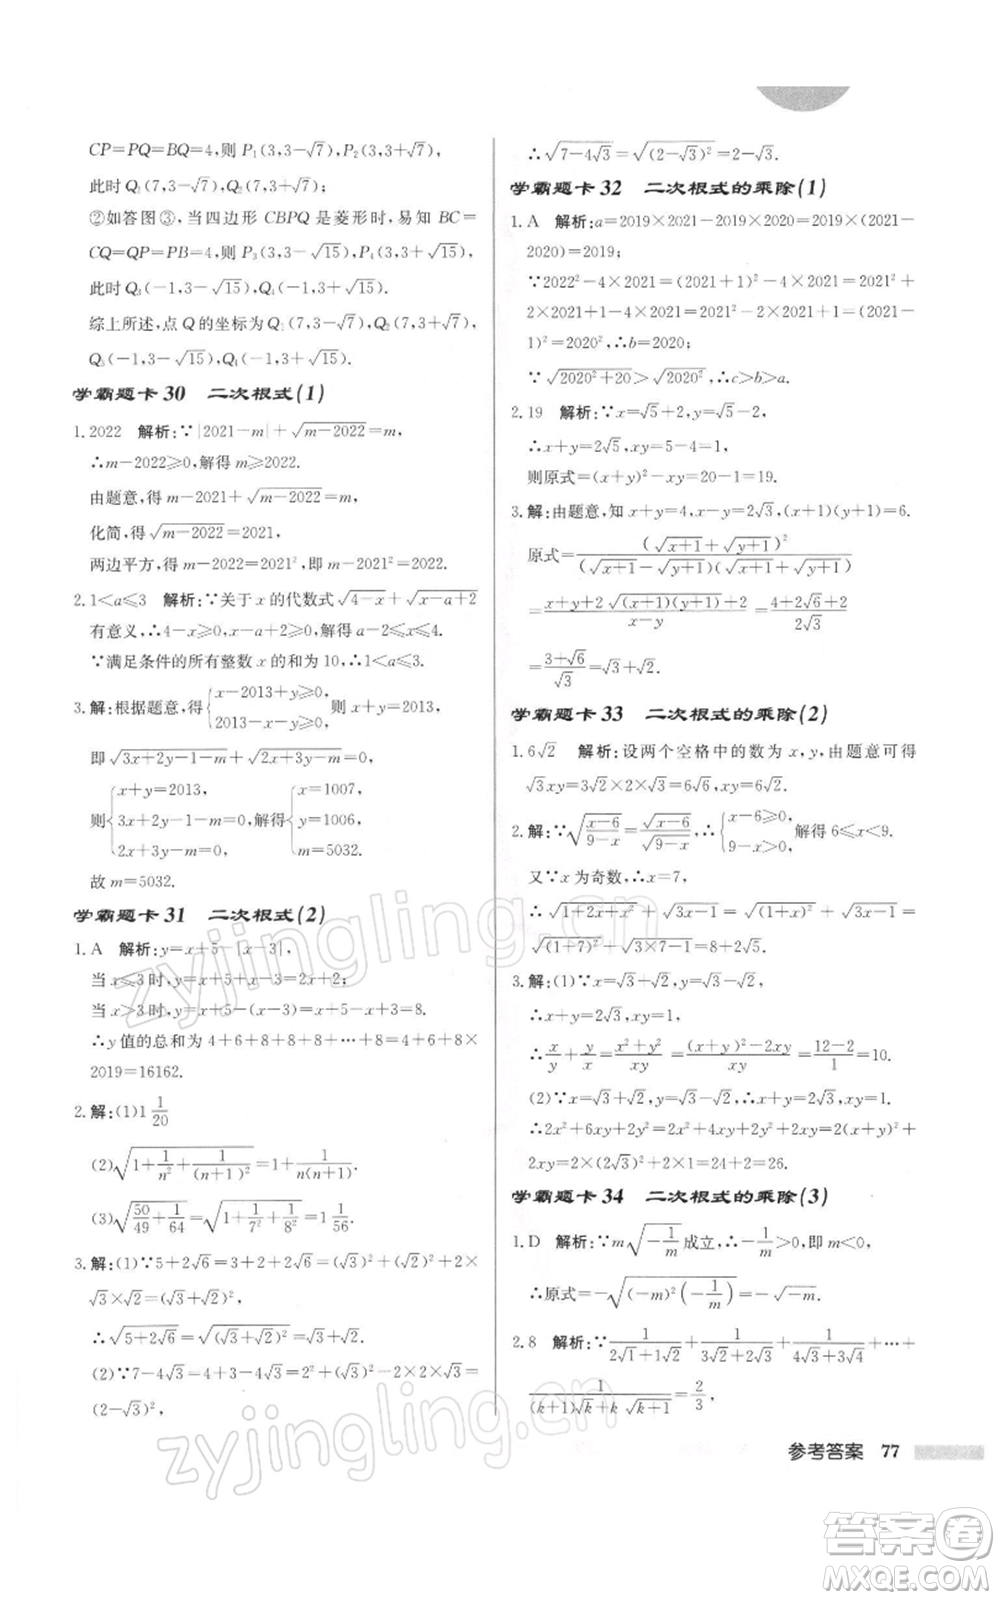 CP=PQ=BQ=4,则 P₁(3,3-√7),P₂(3,3+√7),
此时 Q₁(7,3-√7),Q₂(7,3+√7);
②如答图③,当四边形 CBPQ 是菱形时,易知 BC=
CQ=QP=PB=4,则 P₃(3,3-√15),P₄(3,3+√15),
此时 Q₃(-1,3-√15),Q₄(-1,3+√15).
综上所述,点 Q 的坐标为 Q₁(7,3-√7),Q₂(7,3+√7),
Q₃(-1,3-√15),Q₄(-1,3+√15).
学霸题卡 30 二次根式(1)
1. 2022 解析:∵|2021-m|+√(m-2022)=m,
∴m-2022⩾0,解得 m⩾2022.
由题意,得 m-2021+√(m-2022)=m,
化简,得 √(m-2022)=2021,
两边平方,得 m-2022=2021²,即 m=2021²+2022.
2. 1<a⩽3 解析:∵关于 x 的代数式√(4-x)+√(x-a+2)
有意义,∴4-x⩾0,x-a+2⩾0,解得 a-2⩽x⩽4.
∵满足条件的所有整数 x 的和为 10,∴1<a⩽3.
3. 解:根据题意,得{x-2013+y⩾0, 2013-x-y⩾0, 则 x+y=2013,
即√(3x+2y-1-m)+√(2x+3y-m)=0.
则{x+y=2013, 3x+2y-1-m=0, 2x+3y-m=0, 解得{x=1007, y=1006, m=5032.
故 m=5032.
学霸题卡 31 二次根式(2)
1. A 解析:y=x+5-|x-3|,
当 x⩽3时,y=x+5+x-3=2x+2;
当 x>3时,y=x+5-(x-3)=x+5-x+3=8.
∴y 值的总和为 4+6+8+8+8+…+8=4+6+8×
2019=16162.
2. 解:(1)1 1/20
(2)√(1+1/n²+1/(n+1)²)=1+1/(n(n+1))
(3)√(50/49+1/64)=√(1+1/7²+1/8²)=1 1/56.
3. 解:(1)∵5+2√6=3+2+2√6=(√3)²+(√2)²+2×
√3×√2=(√3+√2)²,
∴√(5+2√6)=√((√3+√2)²)=√3+√2.
(2)∵7-4√3=4+3-4√3=2²+(√3)²-2×2×√3=
(2-√3)²,
∴√(7-4√3)=√((2-√3)²)=2-√3.
学霸题卡 32 二次根式的乘除(1)
1. A 解析:a=2019×2021-2019×2020=2019×(2021-
2020)=2019;
∵2022²-4×2021=(2021+1)²-4×2021=2021²+
2×2021+1-4×2021=2021²-2×2021+1=(2021-
1)²=2020²,∴b=2020;
∵√(2020²+20)>√(2020²),∴c>b>a.
2. 19 解析:∵x=√5+2,y=√5-2,
∴x+y=2√5,xy=5-4=1,
则原式=(x+y)²-xy=20-1=19.
3. 解:由题意,知 x+y=4,x-y=2√3,(x+1)(y+1)=6.
原式=(√(x+1)+√(y+1))²/((√(x+1)-√(y+1))(√(x+1)+√(y+1)))
=(x+y+2+2√((x+1)(y+1)))/(x-y)=(4+2√6+2)/(2√3)
=(3+√6)/√3=√3+√2.
学霸题卡 33 二次根式的乘除(2)
1. 6√2 解析:设两个空格中的数为 x,y,由题意可得
√3xy=3√2×2×√3=6√6,xy=6√2.
2. 解:∵√((x-6)/(9-x))=√(x-6)/√(9-x),∴{x-6⩾0, 9-x>0, 解得 6⩽x<9.
又∵x 为奇数,∴x=7,
∴√(1+2x+x²)+√(3x-1)=√((1+x)²)+√(3x-1)=
√((1+7)²)+√(3×7-1)=8+2√5.
3. 解:(1)∵x=√3+√2,y=√3-√2,
∴x+y=2√3,xy=1,
∴x/y+y/x=(x²+y²)/xy=((x+y)²-2xy)/xy=(12-2)/1=10.
(2)∵x=√3+√2,y=√3-√2,∴x+y=2√3,xy=1.
∴2x²+6xy+2y²=2x²+4xy+2y²+2xy=2(x+y)²+
2xy=2×(2√3)²+2×1=24+2=26.
学霸题卡 34 二次根式的乘除(3)
1. D 解析:∵m√(-1/m)成立,∴-1/m>0,即 m<0,
∴原式=-√((-m)²(-1/m))=-√(-m).
2. 8 解析:∵1/(2√1+1√2)+1/(3√2+2√3)+1/(4√3+3√4)+…+
1/((k+1)√k+k√(k+1))=2/3,
参考答案 77
zyjingling.cn
zyjingling.cn
答案卷
MXQE.COM